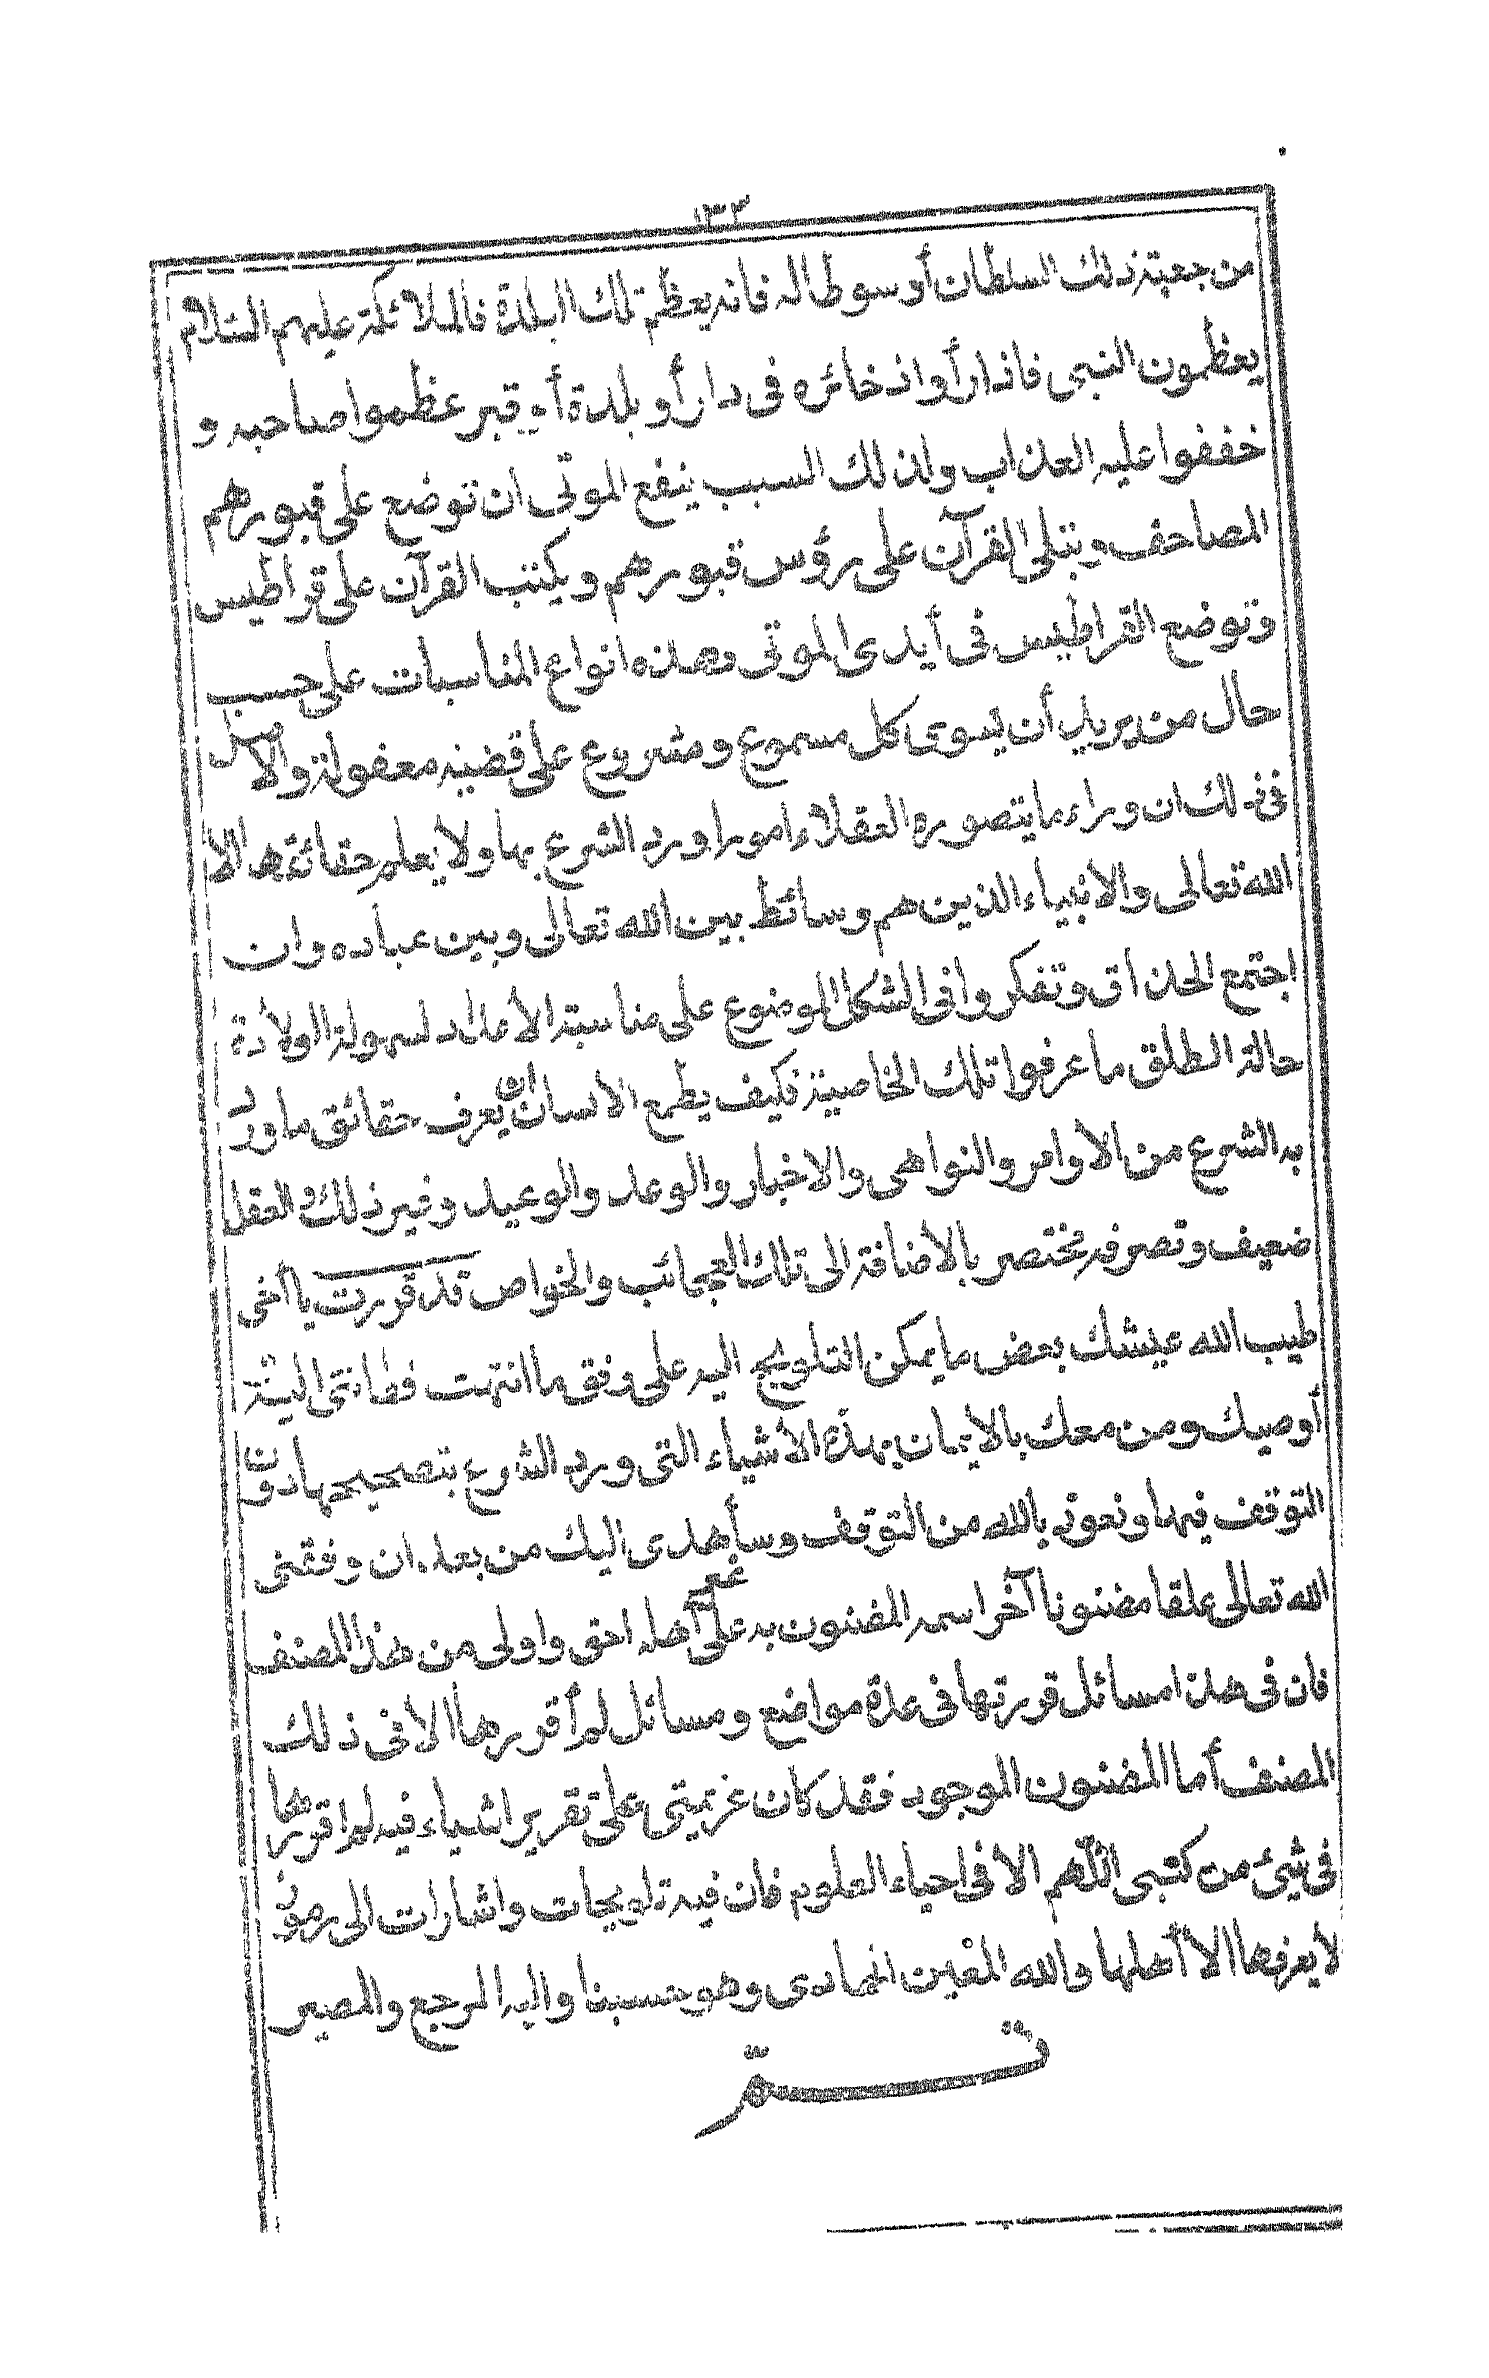 ١٣٢
من جعبته ذلك السلطان أو سوطا له فانه يعظم تلك البلدة فالملائكة عليهم السلام
يعظمون النبى فاذا رأوا ذخائره فى دار أو بلدة أو قبر عظموا صاحبه و
خففوا عليه العذاب ولذلك السبب ينفع الموتى ان توضع على قبورهم
المصاحف ويتلى القرآن على رؤس قبورهم ويكتب القرآن على قراطيس
وتوضع القراطيس فى أيدى الموتى وهذه انواع المناسبات على حسب
حال من يريد أن يسوى كل مسموع ومشروع على قضية معقولة والاصل
فى ذلك ان وراء ما يتصوره العقلاء امورا ورد الشرع بها ولا يعلم حقائقها الا
الله تعالى والانبياء الذين هم وسائط بين الله تعالى وبين عباده وان
اجتمع الحذاق وتفكروا فى الشكل الموضوع على مناسبة الأعداد لسهولة الولادة
حالة الطلق ما عرفوا تلك الخاصية فكيف يطمع الانسان ان يعرف حقائق ما ورد
به الشرع من الأوامر والنواهى والاخبار والوعد والوعيد وغير ذلك والعقل
ضعيف وتصرفه مختصر بالأضافة الى تلك العجائب والخواص قد قررت يا أخى
طيب الله عيشك بعض ما يمكن التلويح اليه على وفق ما انتهت فطانتى اليه ثم
أوصيك ومن معك بالايمان بهذه الأشياء التى ورد الشرع بتصحيحها دون
التوقف فيها ونعوذ بالله من التوقف وسأهدى اليك من بعد ان وفقنى
الله تعالى علقا مضنونا آخر اسمه المضنون به على أهله احق واولى من هذا المصنف
فان فى هذا مسائل قررتها فى عدة مواضع ومسائل لم أقررها الا فى ذلك
المصنف أما المضنون الموجود فقد كان عزيمتى على تقرير اشياء فيه لم اقررها
فى شئ من كتبى اللهم الا فى احياء العلوم فان فيه تلويحات واشارات الى رموز
لا يعرفها الا أهلها والله المعين الهادى وهو حسبنا واليه المرجع والمصير
تم